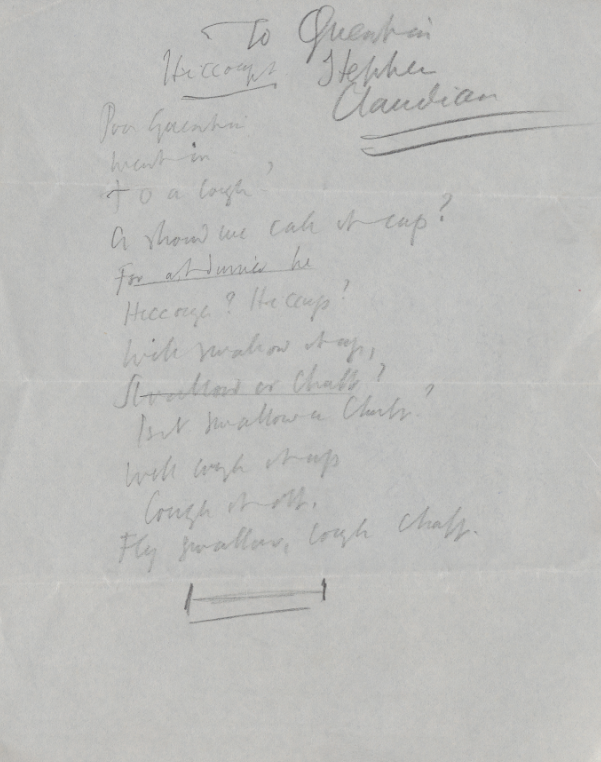 To Quentin
Hiccough Stephen
Claudian
Poor Quentin
went in
To a cough,
Or should we call it cup?
For at dinner he
Hiccough? Hiccup?
We'll swallow it up,
Swallow or Chaff?
But swallow a Chaff?
We'll cough it up
Cough it off.
Fly swallow, cough chaff.